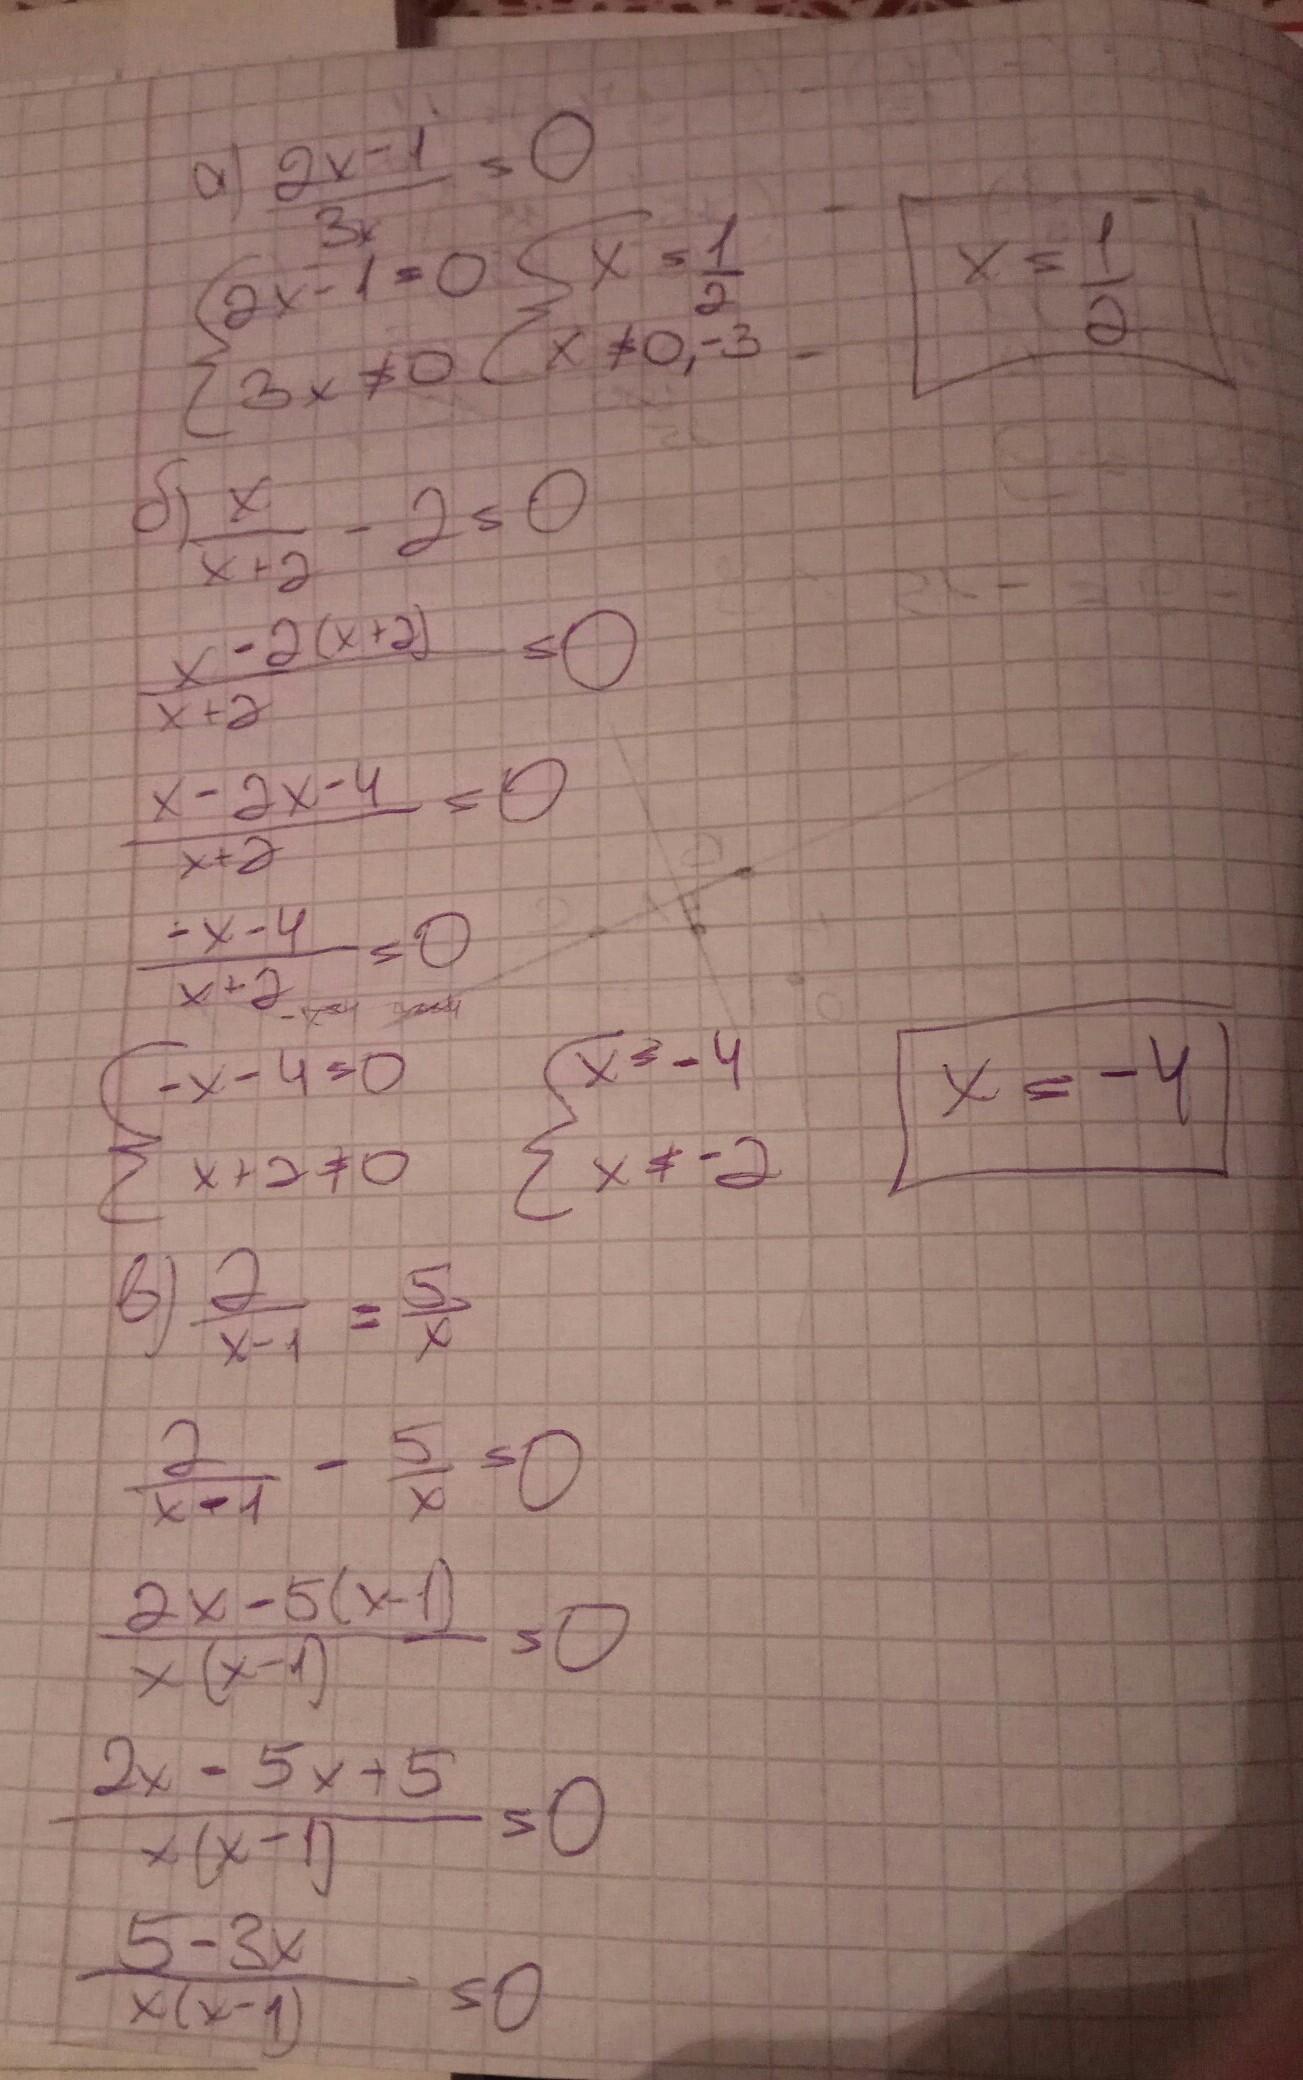 а) (2x-1)/(3x) = 0
{2x-1=0 {x = 1/2 x = 1/2
{3x≠0 {x ≠0,-3
б) x/(x+2) - 2 = 0
(x-2(x+2))/(x+2) = 0
(x-2x-4)/(x+2) = 0
(-x-4)/(x+2) = 0
{-x-4=0 {x=-4 x = -4
{x+2≠0 {x≠-2
в) 2/(x-1) = 5/x
2/(x-1) - 5/x = 0
(2x-5(x-1))/(x(x-1)) = 0
(2x-5x+5)/(x(x-1)) = 0
(5-3x)/(x(x-1)) = 0